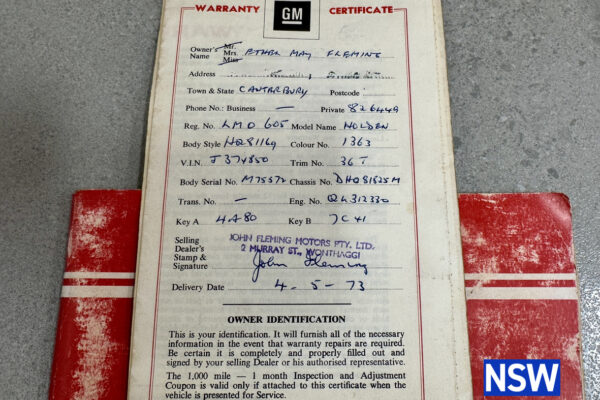 WARRANTY GM CERTIFICATE
Owner's Mr. Mrs. Miss ETHEL MAY FLEMING
Name
Address
Town & State CANTERBURY Postcode
Phone No.: Business — Private 826449
Reg. No. LMO 605 Model Name HOLDEN
Body Style HQ81169 Colour No. 1363
V.I.N. J374850 Trim No. 36T
Body Serial No. M75572 Chassis No. DHQ81525M
Trans. No. — Eng. No. QL312330
Key A 4A80 Key B 7C41
Selling
Dealer's
Stamp &
Signature
JOHN FLEMING MOTORS PTY. LTD.
2 MURRAY ST., WONTHAGGI
John Fleming
Delivery Date 4-5-73
OWNER IDENTIFICATION
This is your identification. It will furnish all of the necessary
information in the event that warranty repairs are required.
Be certain it is completely and properly filled out and
signed by your selling Dealer or his authorised representative.
The 1,000 mile — 1 month Inspection and Adjustment
Coupon is valid only if attached to this certificate when the
vehicle is presented for Service.
NSW